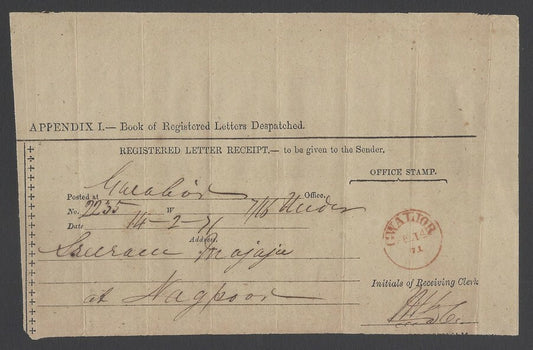 APPENDIX I.— Book of Registered Letters Despatched.
REGISTERED LETTER RECEIPT.— to be given to the Sender.
OFFICE STAMP.
Posted at Gwalior Office.
No. 2235 W Under
Date 14-2-71
Address.
GWALIOR
71
at Nagpoor
Initials of Receiving Clerk